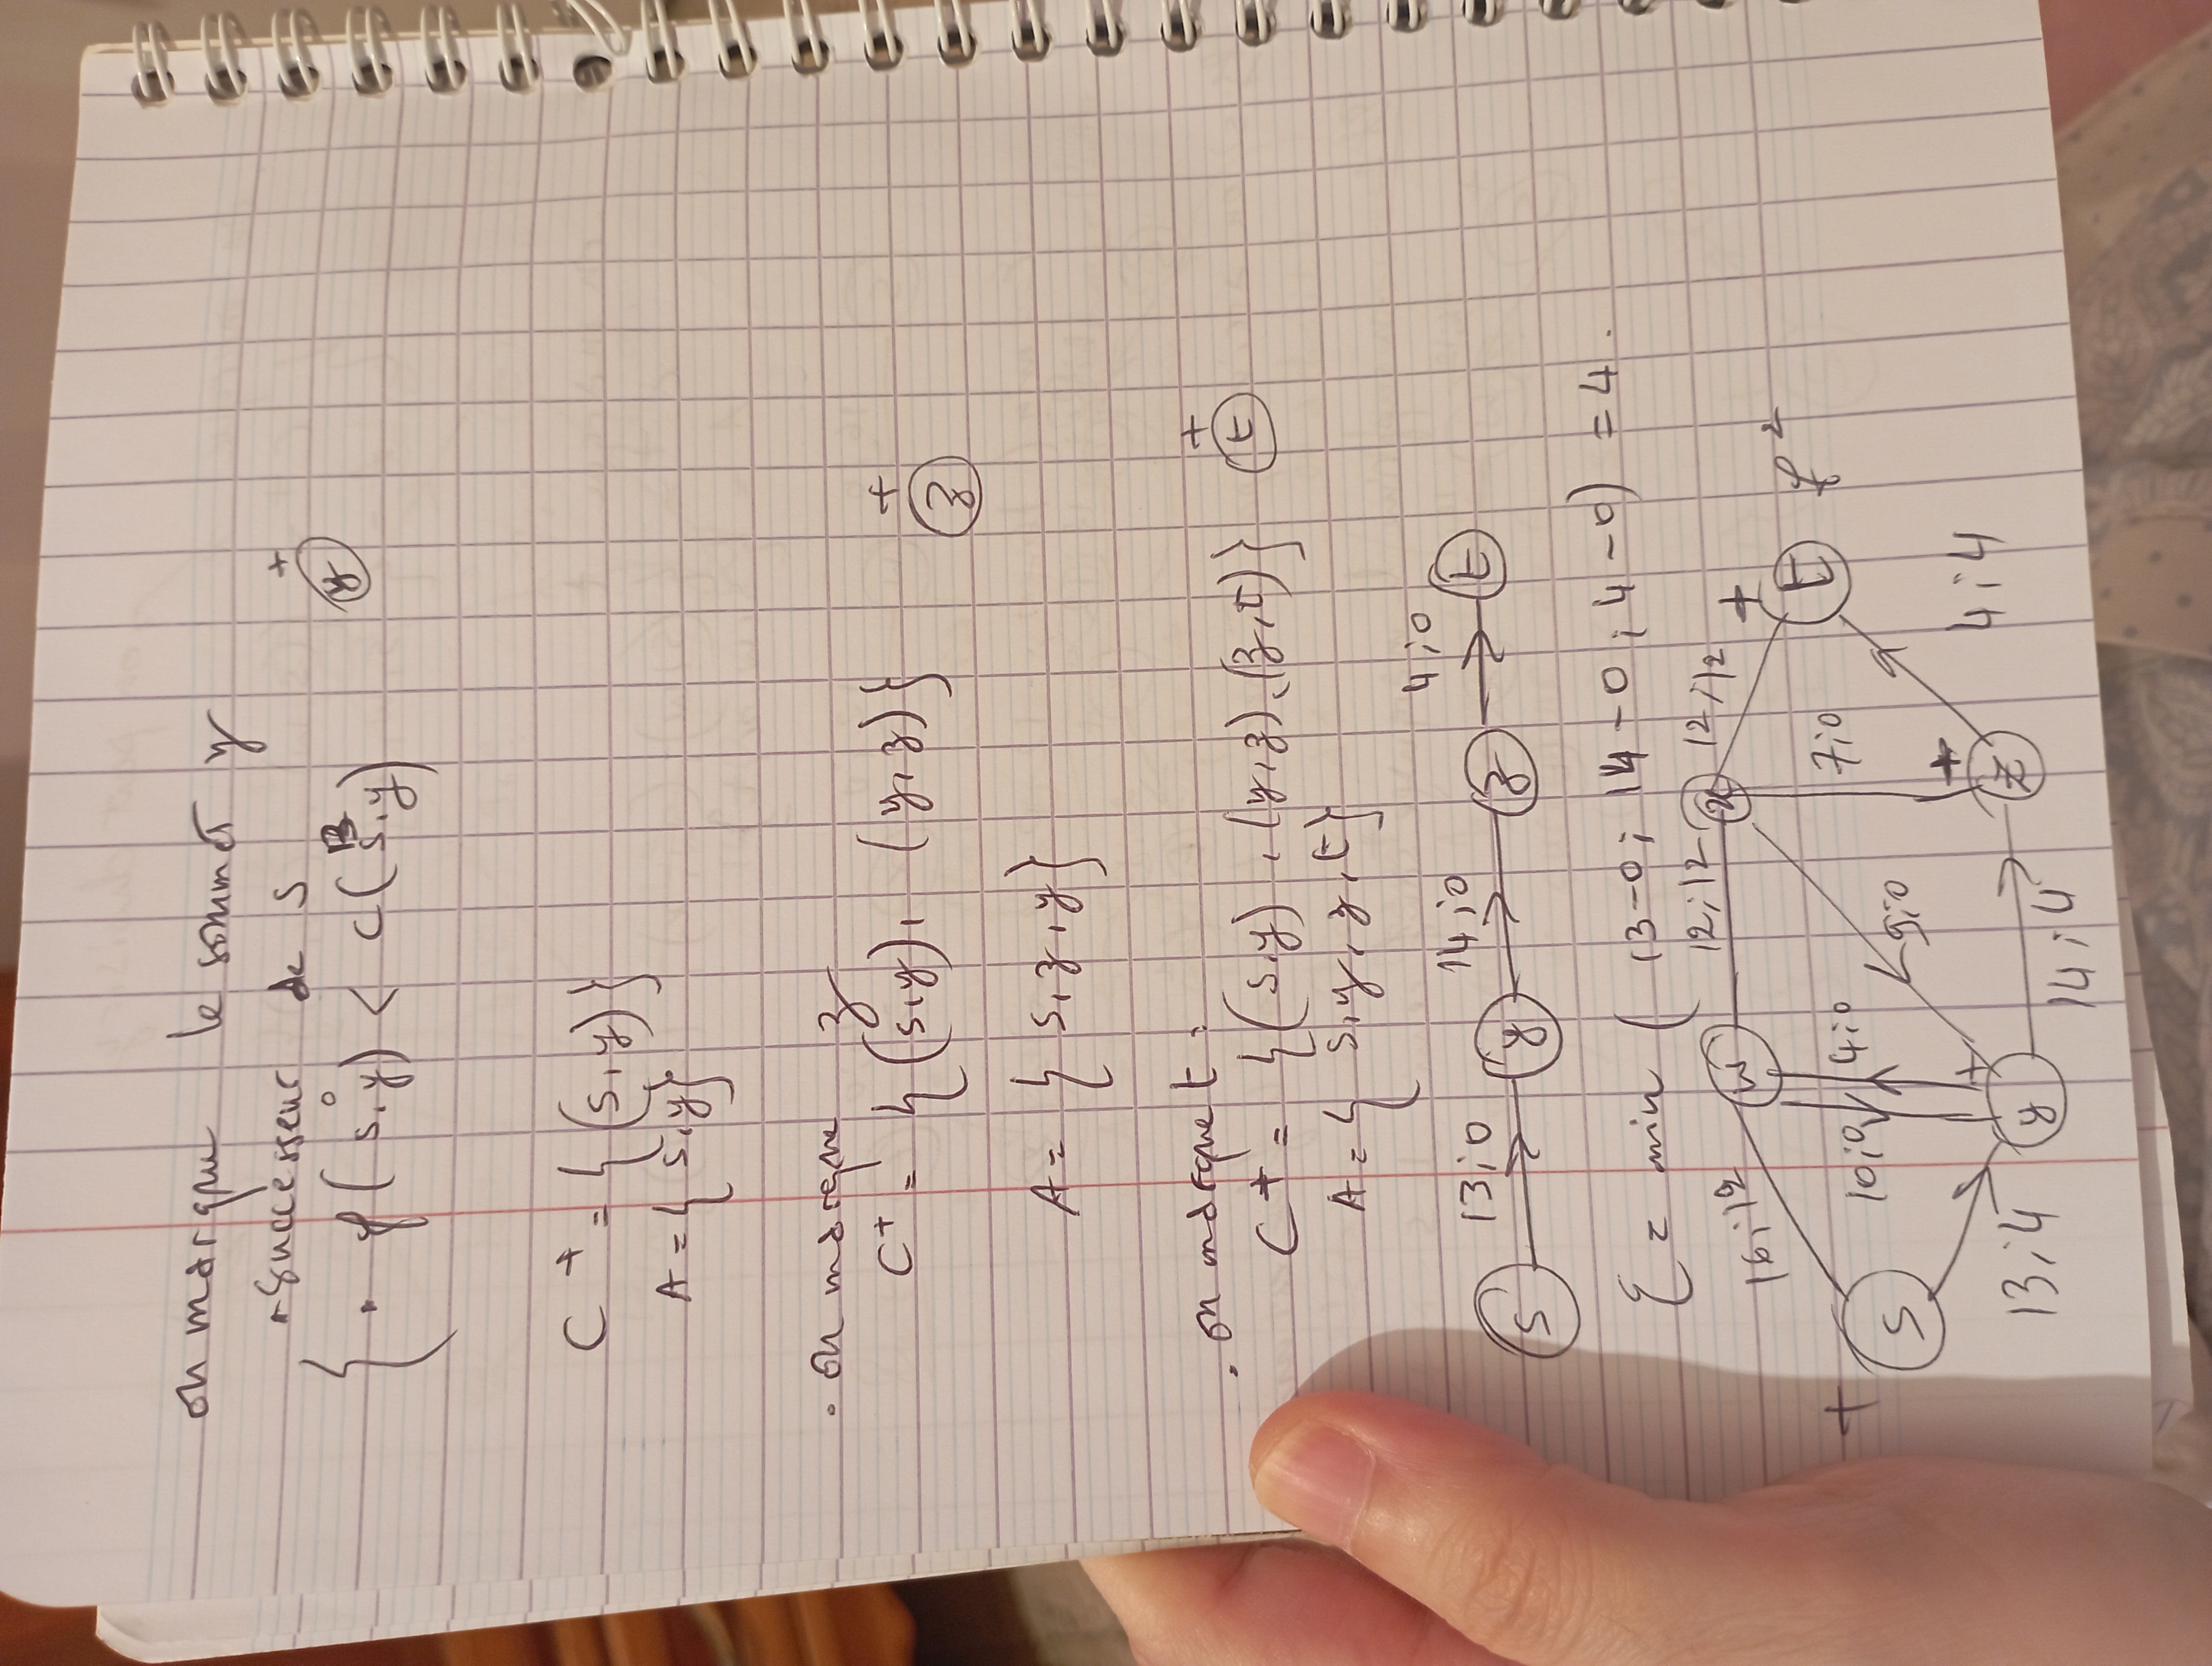 on marque le sommet y
• Successeur de s
+
{ • f(s,y) < c(s,y)
0
13
y
C+ = {(s,y)}
A = {s,y}
• on marque z
C+ = {(s,y), (y,z)}
+
z
A = {s,z,y}
• on marque t :
C+ = {(s,y), (y,z), (z,t)}
+
t
A = {s,y,z,t}
13;0 14;0 4;0
s y z t
ε = min (13-0; 14-0; 4-0) = 4.
16;12 w 12;12 12;12
+ t f²
+ s 10;0 4;0 9;0 7;0
13;4 + y 14;4 + z 4;4